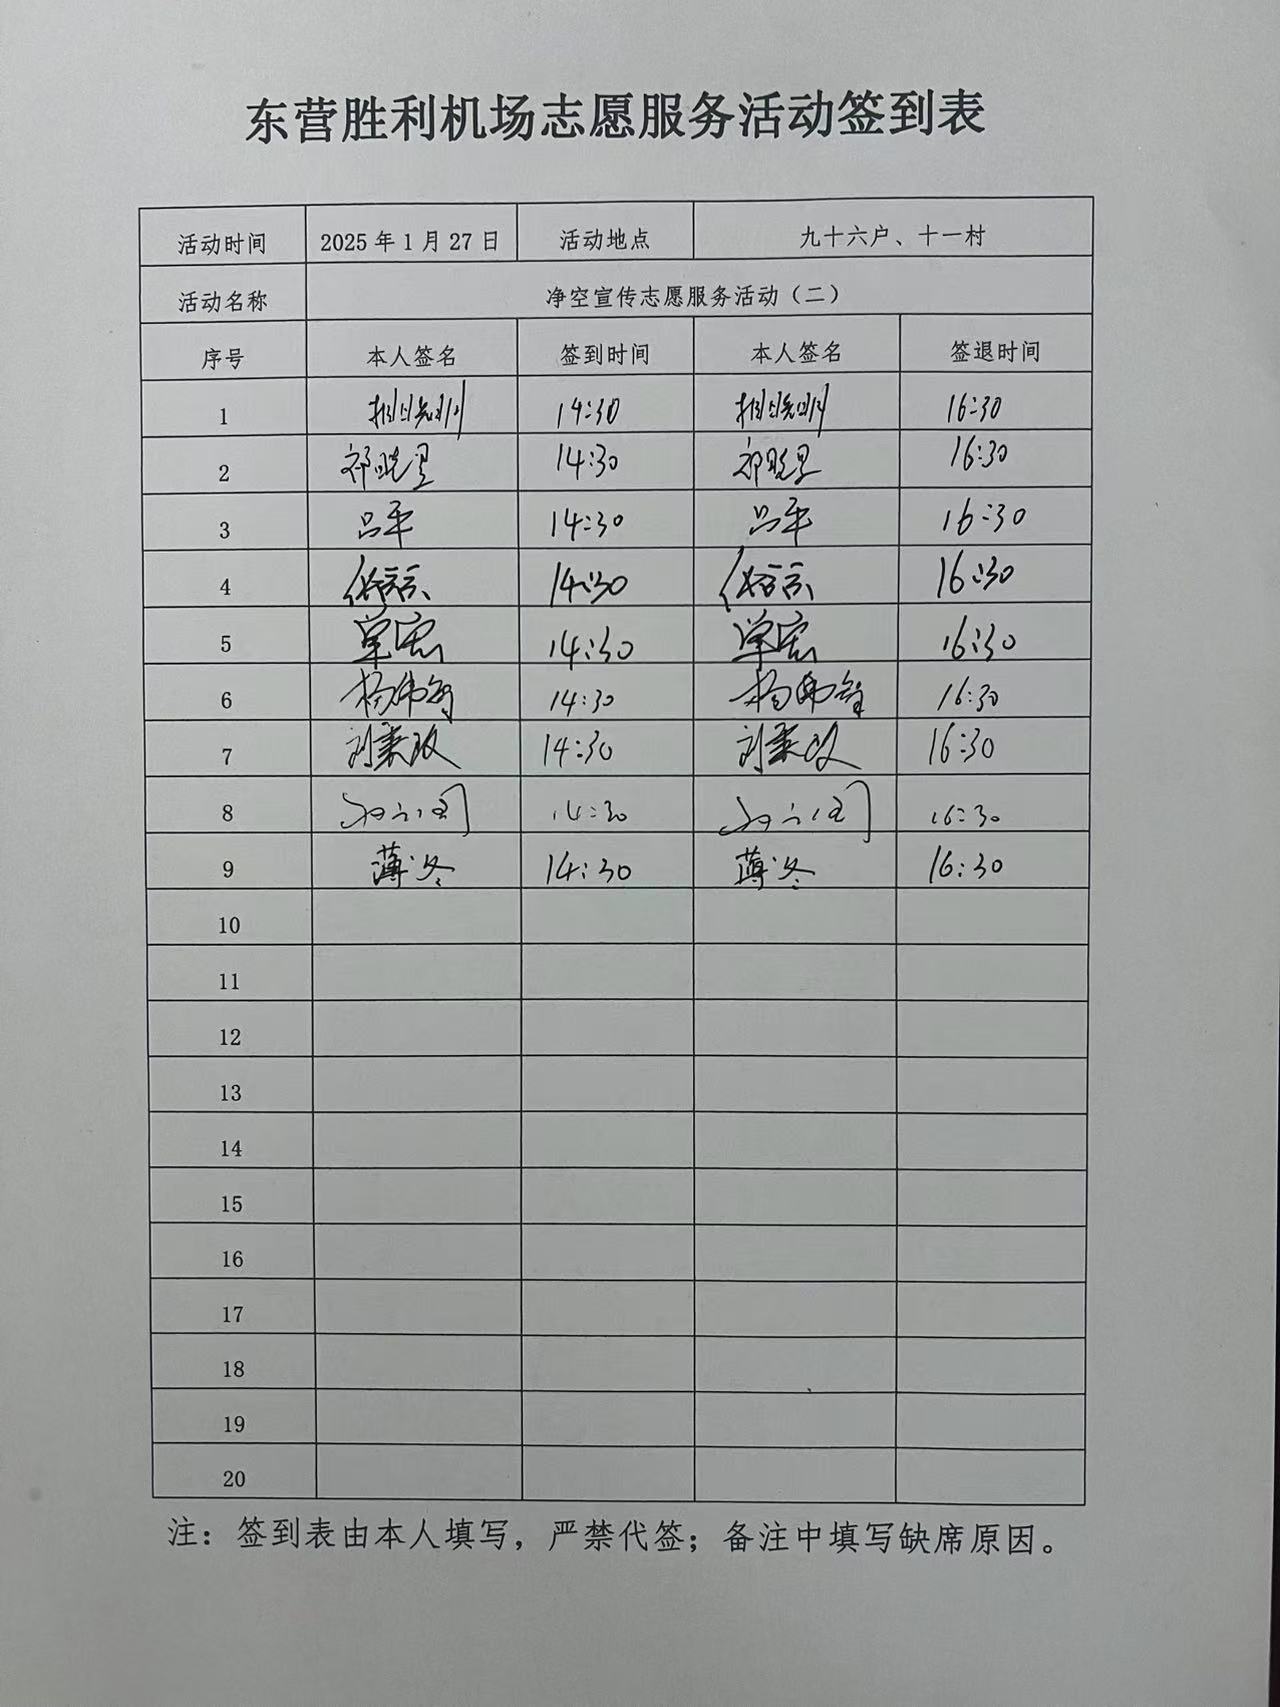 东营胜利机场志愿服务活动签到表
活动时间 2025年1月27日 活动地点 九十六户、十一村
活动名称 净空宣传志愿服务活动（二）
序号 本人签名 签到时间 本人签名 签退时间
1 14:30 16:30
2 祁晓星 14:30 祁晓星 16:30
3 吕平 14:30 吕平 16:30
4 14:30 16:30
5 单宏 14:30 单宏 16:30
6 杨伟智 14:30 杨伟智 16:30
7 14:30 16:30
8 14:30 16:30
9 薄冬 14:30 薄冬 16:30
10
11
12
13
14
15
16
17
18
19
20
注：签到表由本人填写，严禁代签；备注中填写缺席原因。